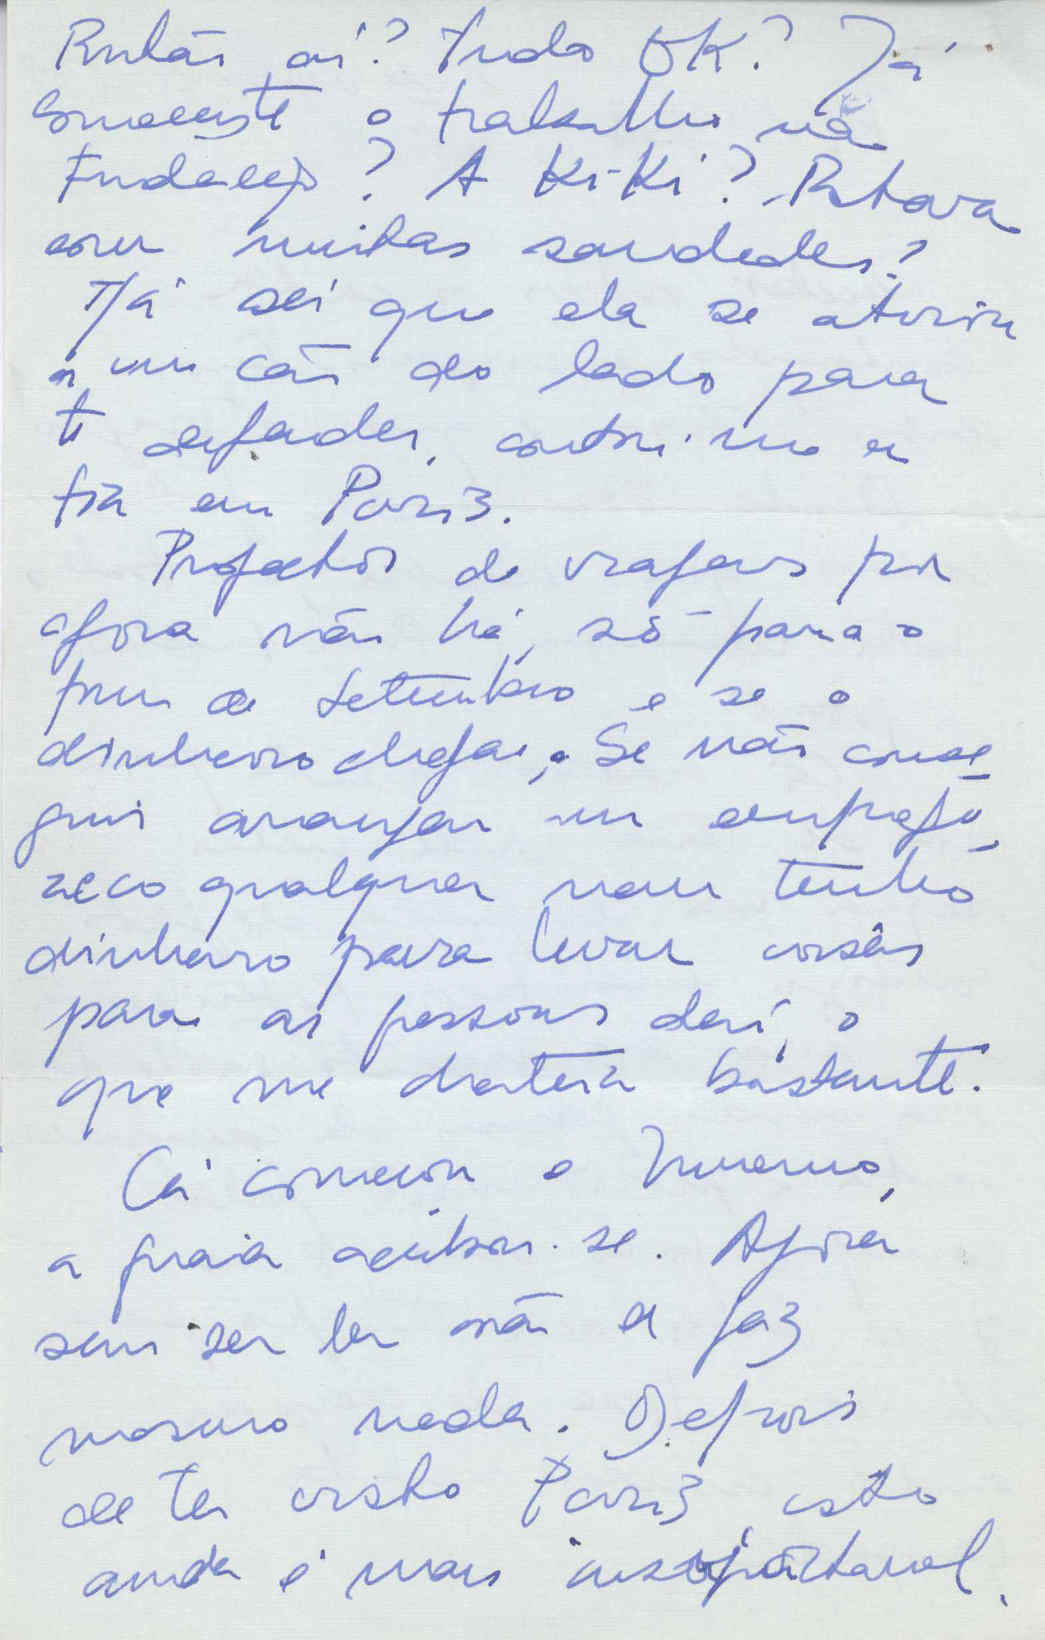 Então aí? Tudo OK? Já
começaste o trabalho na
Fundação? A Ki-Ki? Estava
com muitas saudades?
Já sei que ela se atirou
a um cão do lado para
te defender, contou-me a
tia em Paris.
Projectos de viagens por
agora não há, só para o
fim de Setembro e se o
dinheiro chegar. Se não conse
guir arranjar um empregu
zeco qualquer nem tenho
dinheiro para levar coisas
para as pessoas daí, o
que me chateia bastante.
Cá começou o Inverno,
a praia acabou-se. Agora
sem ser ler não se faz
mesmo nada. Depois
de ter visto Paris, isto
ainda é mais insuportável.